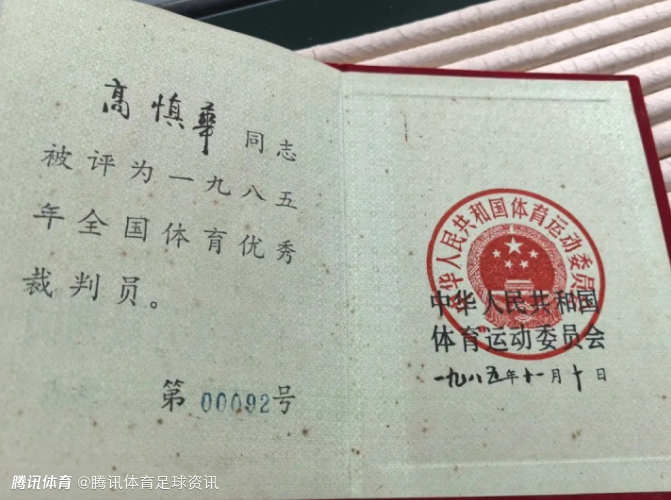 高慎华 同志
被评为一九八五
年全国体育优秀
裁判员。
第 00092 号
中华人民共和国体育运动委员会
中华人民共和国
体育运动委员会
一九八五年十一月十日
腾讯体育 @腾讯体育足球资讯